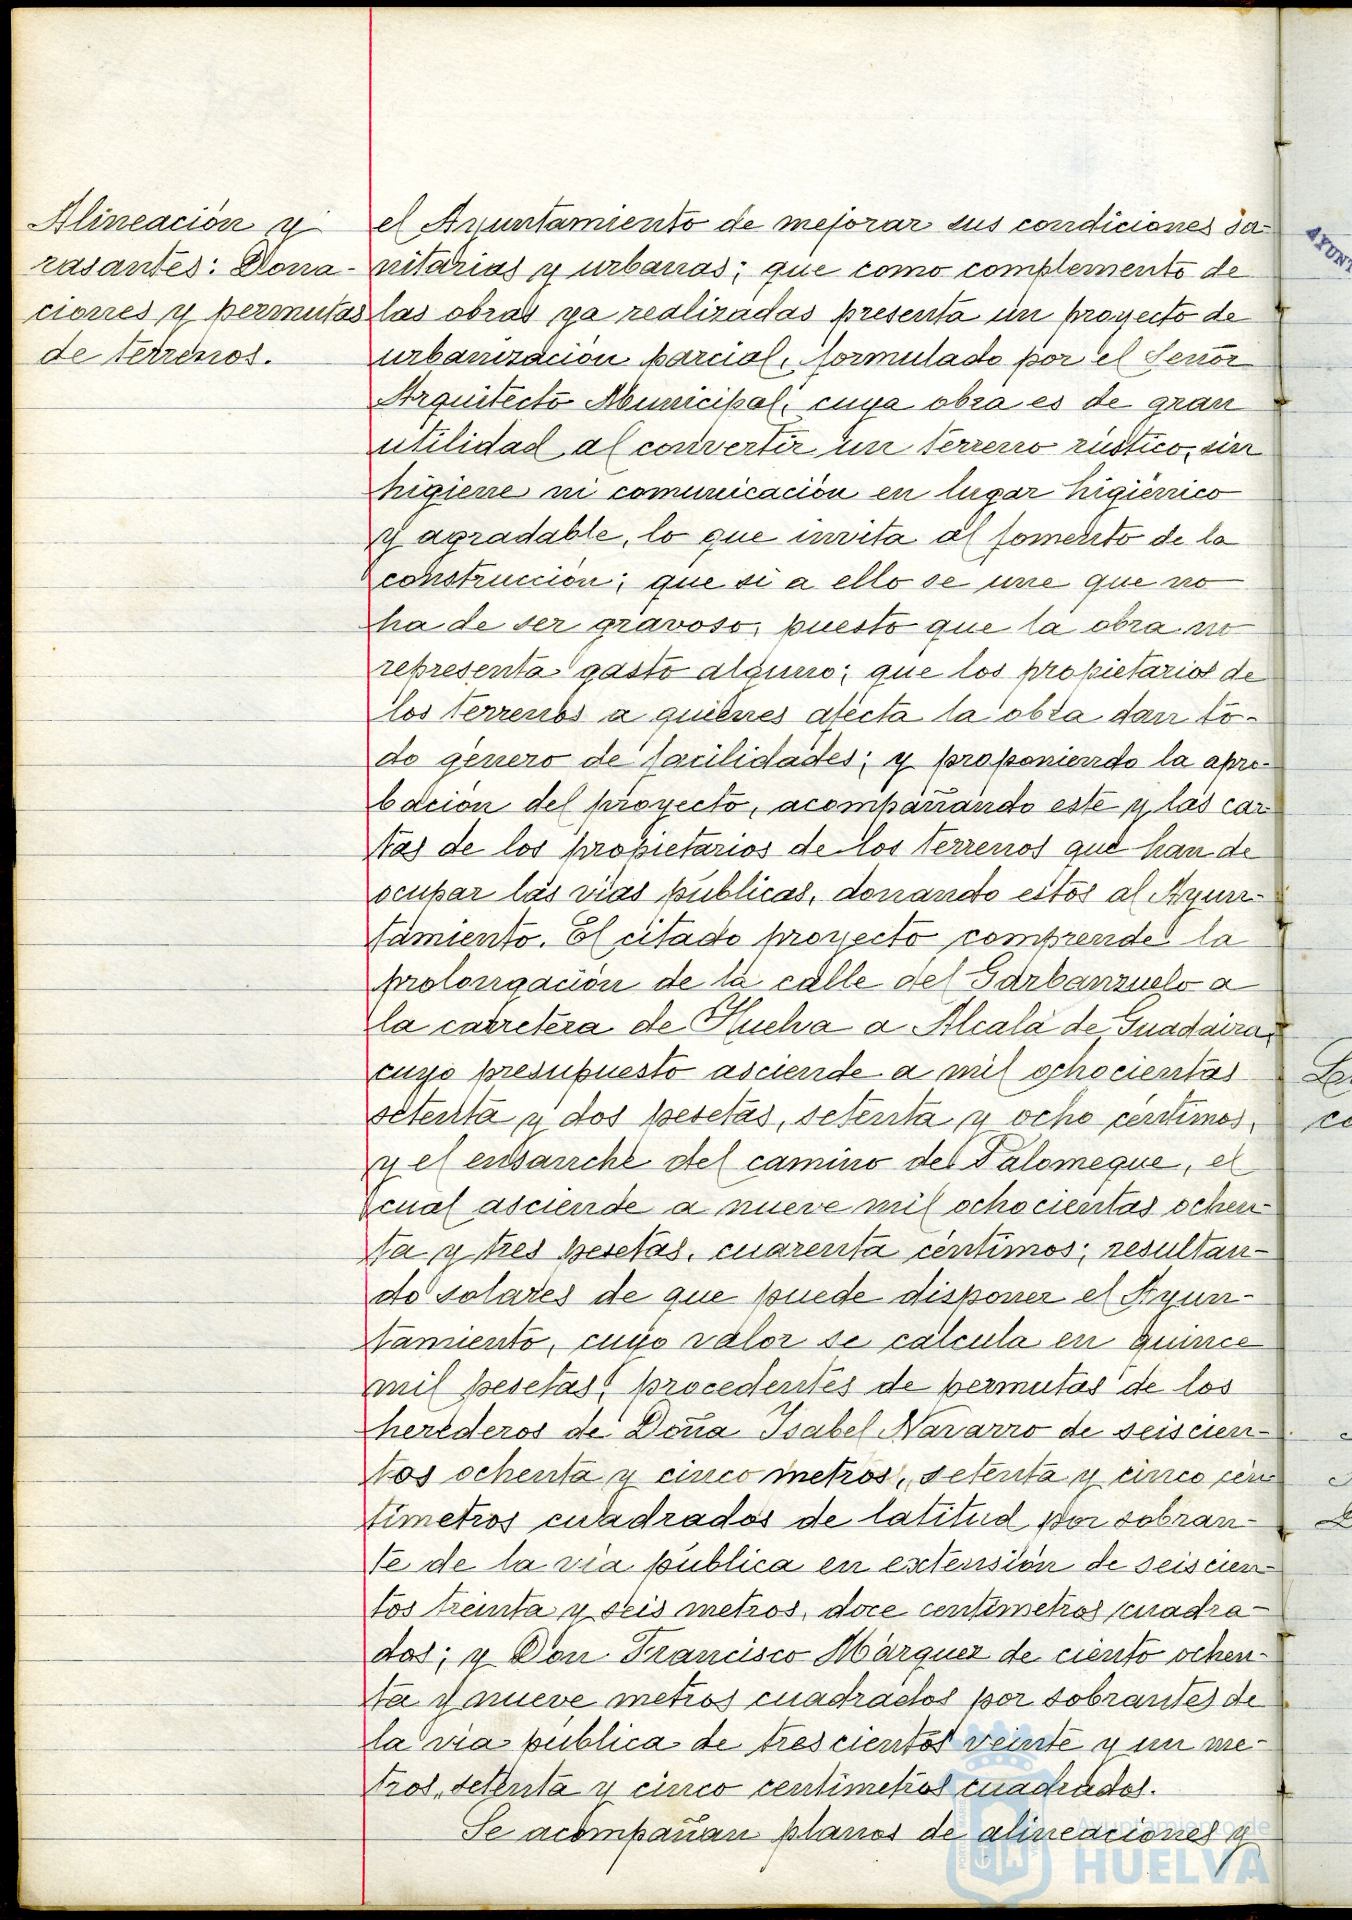 Alineación y
rasantes: Dona-
ciones y permutas
de terrenos.
el Ayuntamiento de mejorar sus condiciones sa-
nitarias y urbanas; que como complemento de
las obras ya realizadas presenta un proyecto de
urbanización parcial, formulado por el Señor
Arquitecto Municipal, cuya obra es de gran
utilidad al convertir un terreno rústico, sin
higiene ni comunicación en lugar higiénico
y agradable, lo que invita al fomento de la
construcción; que si a ello se une que no
ha de ser gravoso, puesto que la obra no
representa gasto alguno; que los propietarios de
los terrenos a quienes afecta la obra dan to-
do género de facilidades; y proponiendo la apro-
bación del proyecto, acompañando este y las car-
tas de los propietarios de los terrenos que han de
ocupar las vías públicas, donando estos al Ayun-
tamiento. El citado proyecto comprende la
prolongación de la calle del Garbanzuelo a
la carretera de Huelva a Alcalá de Guadaira,
cuyo presupuesto asciende a mil ochocientas
setenta y dos pesetas, setenta y ocho céntimos,
y el ensanche del camino del Palomeque, el
cual asciende a nueve mil ochocientas ochen-
ta y tres pesetas, cuarenta céntimos; resultan-
do solares de que puede disponer el Ayun-
tamiento, cuyo valor se calcula en quince
mil pesetas, procedentes de permutas de los
herederos de Doña Isabel Navarro de seiscien-
tos ochenta y cinco metros, setenta y cinco cen-
tímetros cuadrados de latitud por sobran-
te de la vía pública en extensión de seiscien-
tos treinta y seis metros, doce centímetros cuadra-
dos; y Don Francisco Márquez de ciento ochen-
ta y nueve metros cuadrados por sobrantes de
la vía pública de trescientos veinte y un me-
tros, setenta y cinco centímetros cuadrados.
Se acompañan planos de alineaciones y
Ayuntamiento de
HUELVA